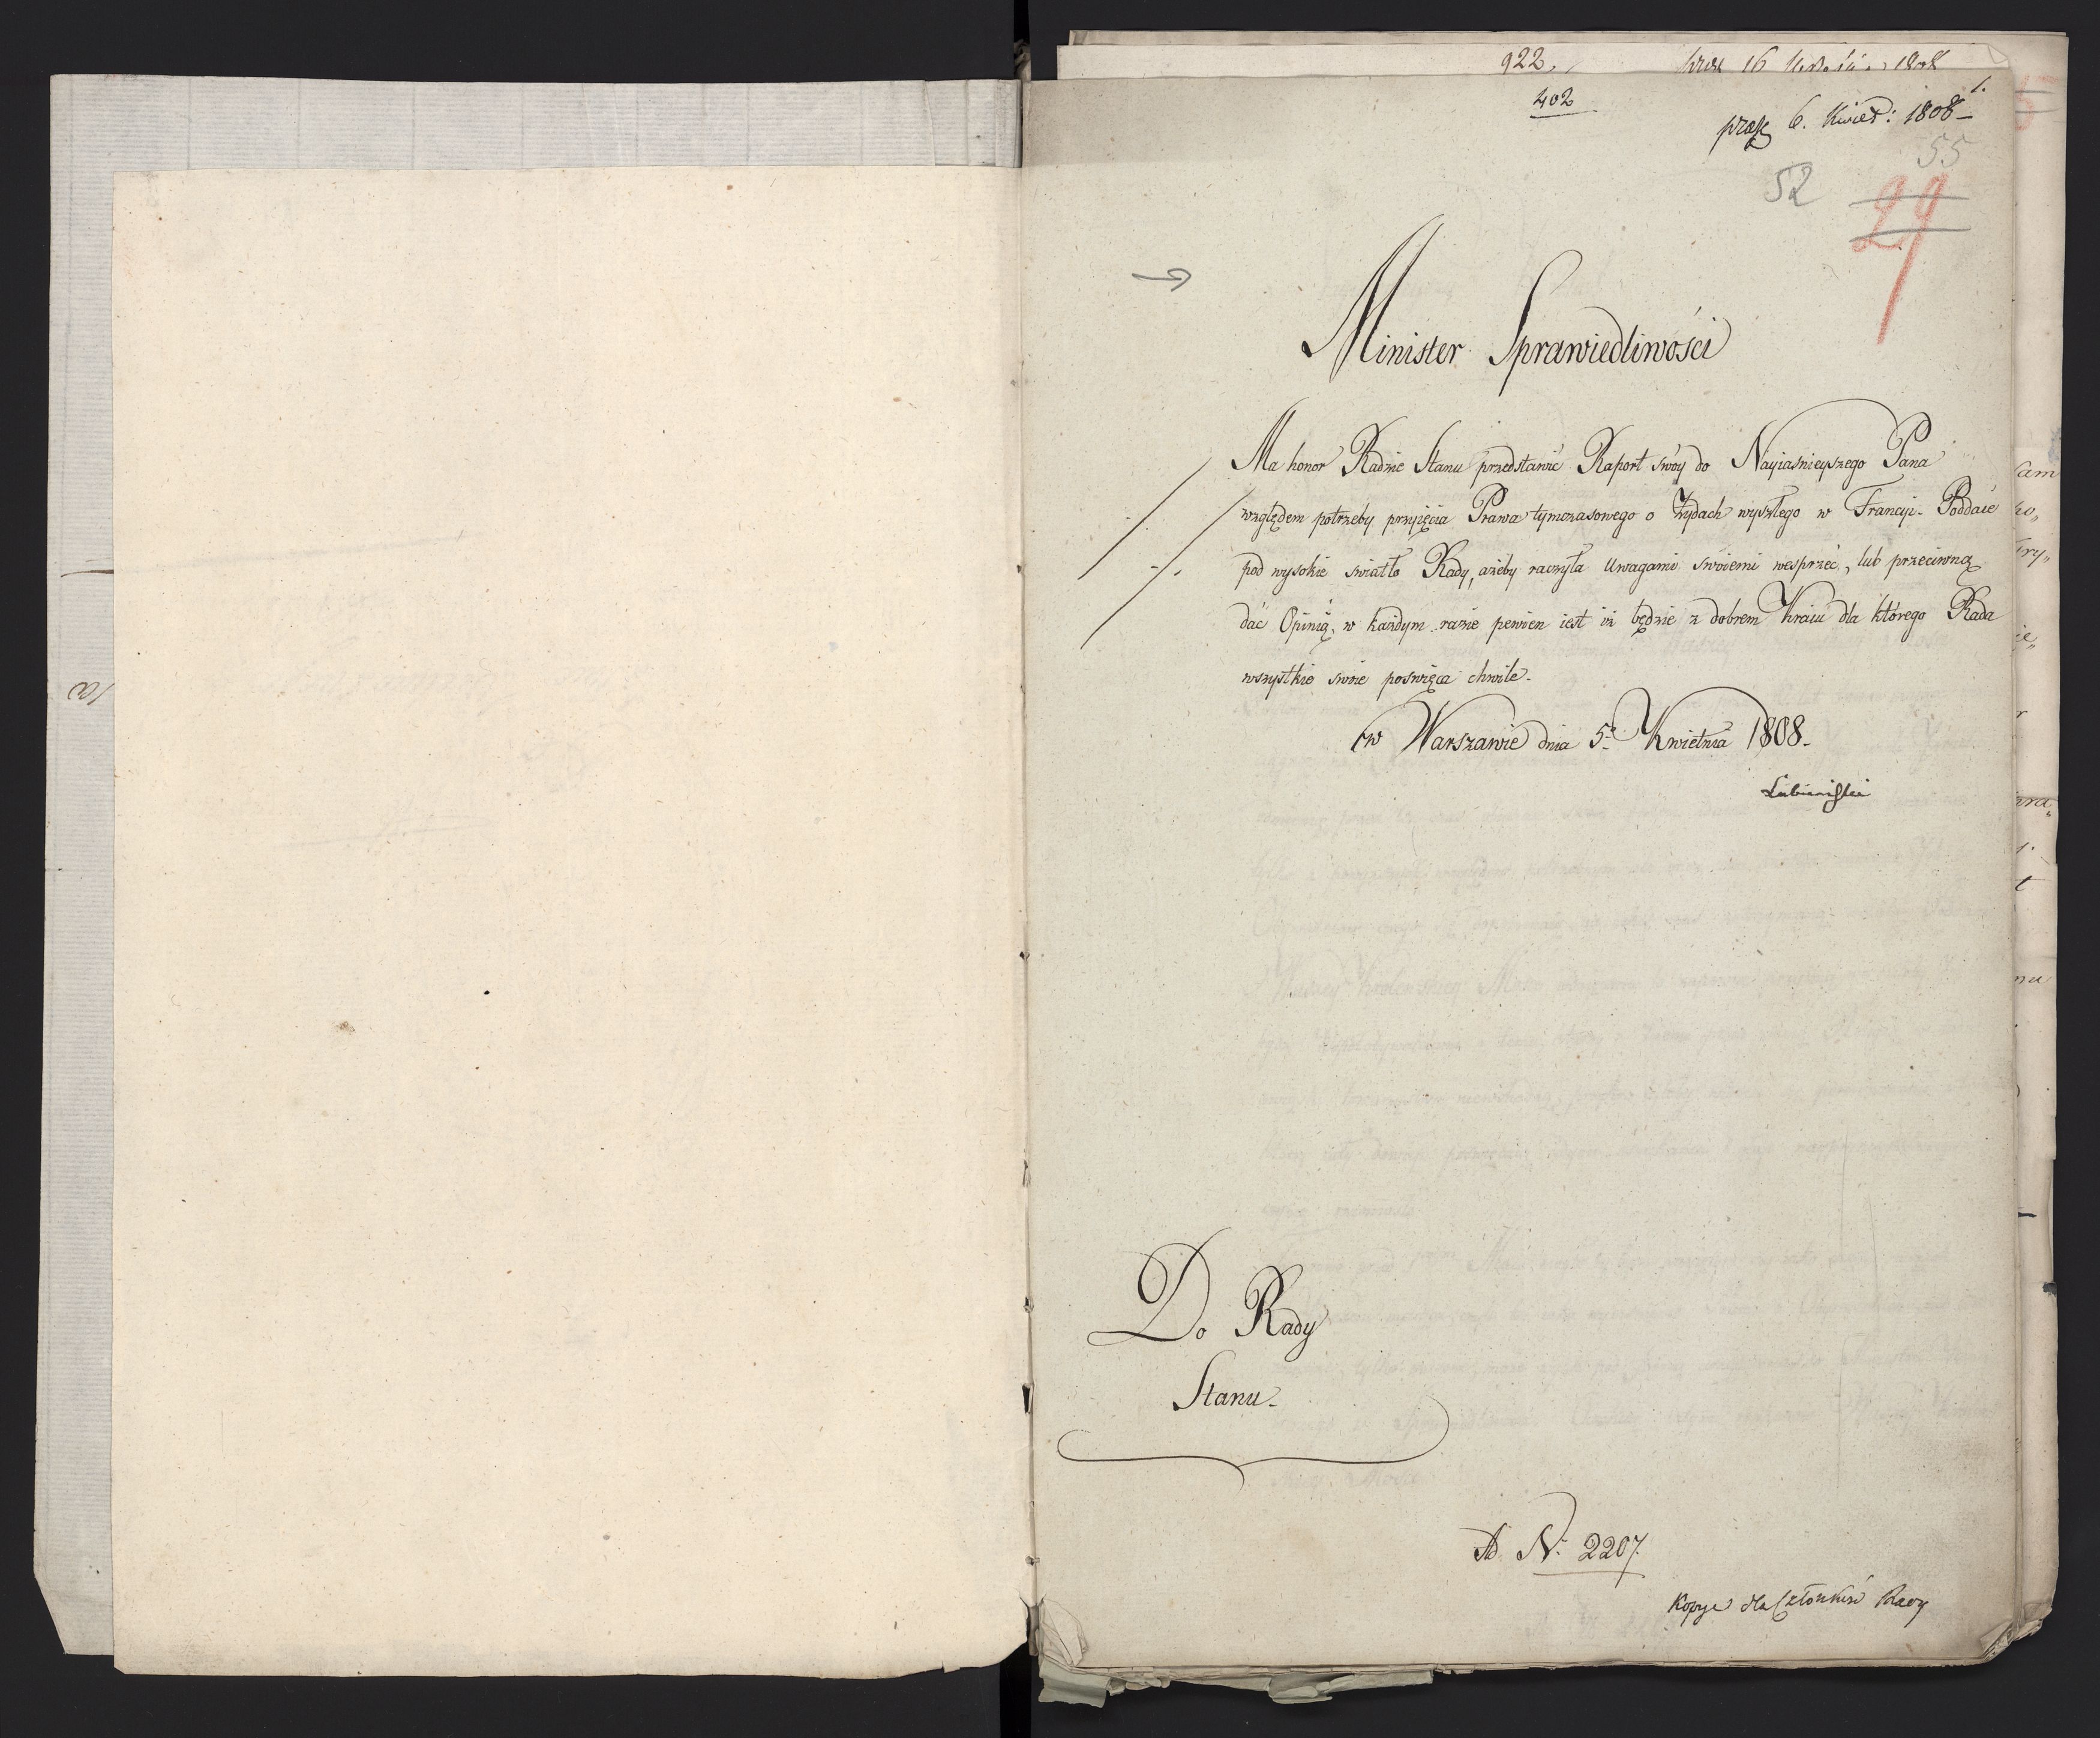 922.
16 1808
402
1.
præs 6. Kwiet: 1808 –
55
52
29
Minister Sprawiedliwości
Ma honor Radzie Stanu przedstawić Raport swóy do Nayiasnieyszego Pana
względem potrzeby przyięcia Prawa tymczasowego o Żydach wyszłego w Francyi. Poddaie
pod wysokie swiatło Rady, ażeby raczyła Uwagami swoiemi wesprzeć, lub przeciwną
dać Opinią, w każdym razie pewien iest iż będzie z dobrem Kraiu dla którego Rada
wszystkie swoie poswięca chwile.
w Warszawie dnia 5º Kwietnia 1808.
Łubieński
Do Rady
Stanu.
Ad Nº 2207.
Kopye dla Członków Rady